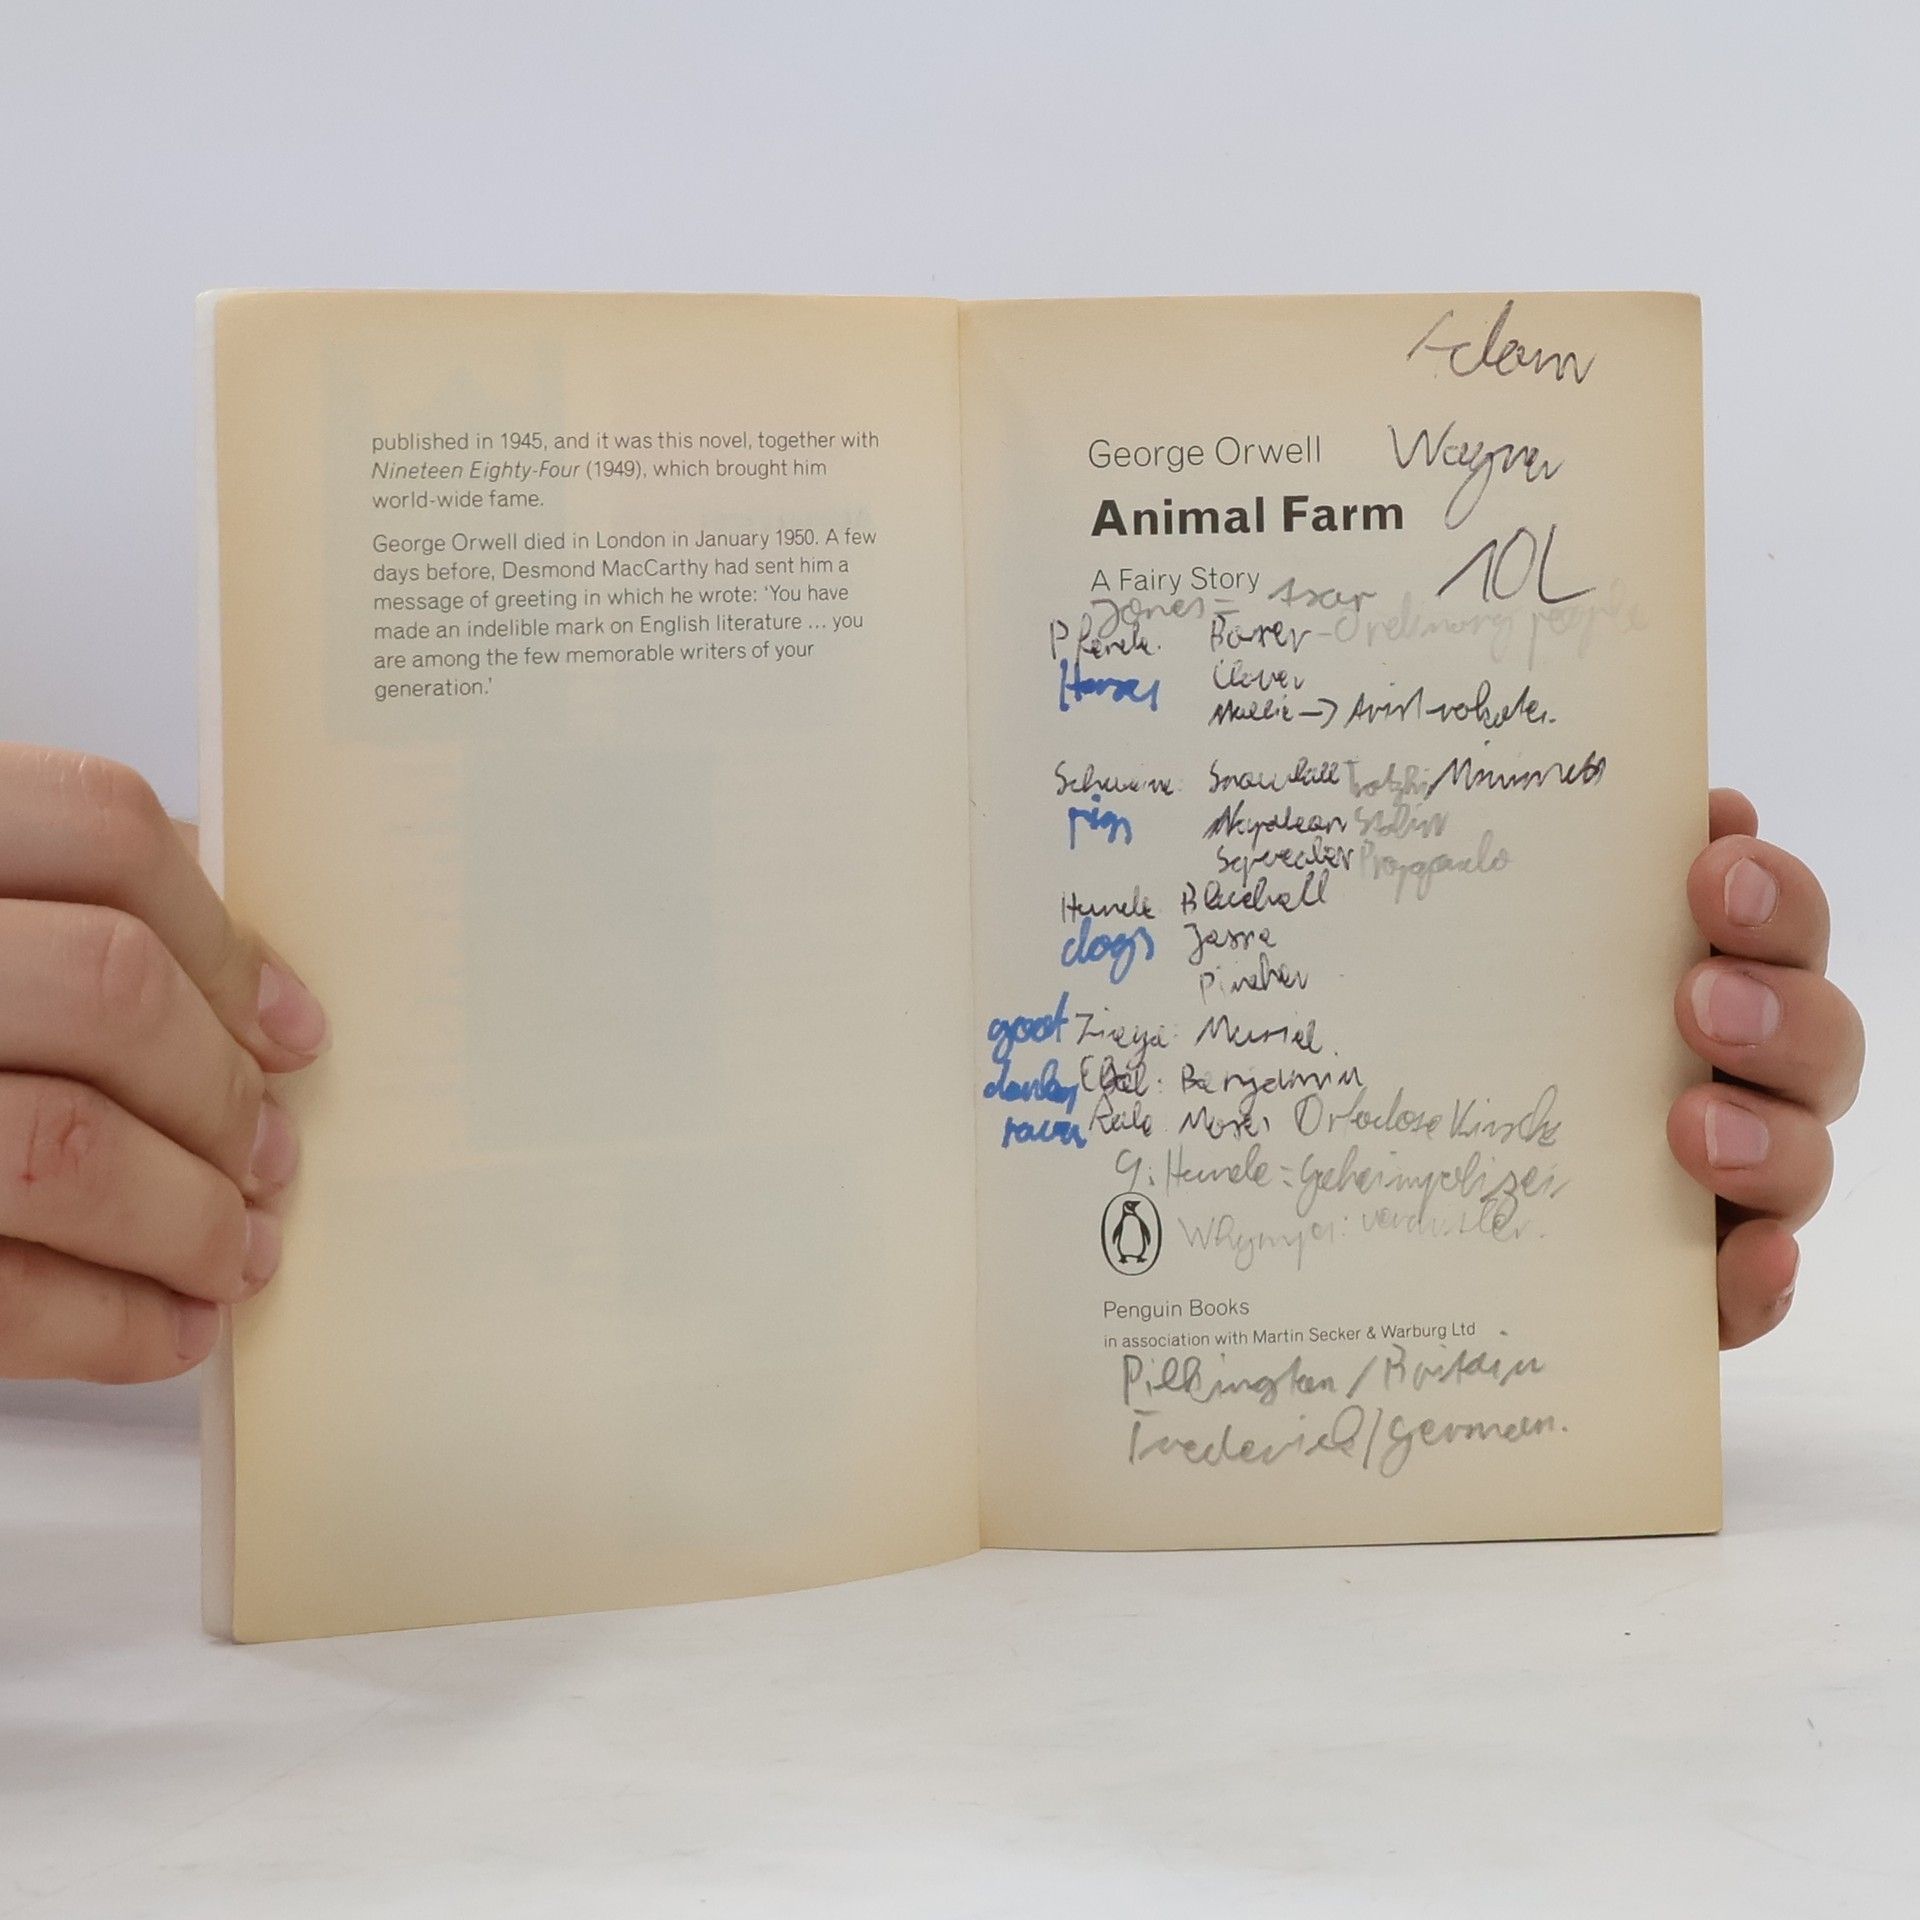 published in 1945, and it was this novel, together with
Nineteen Eighty-Four (1949), which brought him
world-wide fame.
George Orwell died in London in January 1950. A few
days before, Desmond MacCarthy had sent him a
message of greeting in which he wrote: ‘You have
made an indelible mark on English literature ... you
are among the few memorable writers of your
generation.’
Adam
George Orwell
Wagner
Animal Farm
10L
A Fairy Story
Jones =
Pferde: Boxer - Ordinary people
Horses Clover
Mollie → Aristrokaten
Schweine: Snowball Trotzki
pigs Napoleon Stalin
Squealer
Hunde Bluebell
dogs Jessie
Pincher
goat Ziege: Muriel
donkey Esel: Benjamin
raven Rabe Moses Ortodose Kirche
9: Hunde = Geheimpolizei
Whymper:
Penguin Books
in association with Martin Secker & Warburg Ltd
Pilkington / Britain
Frederick / German.